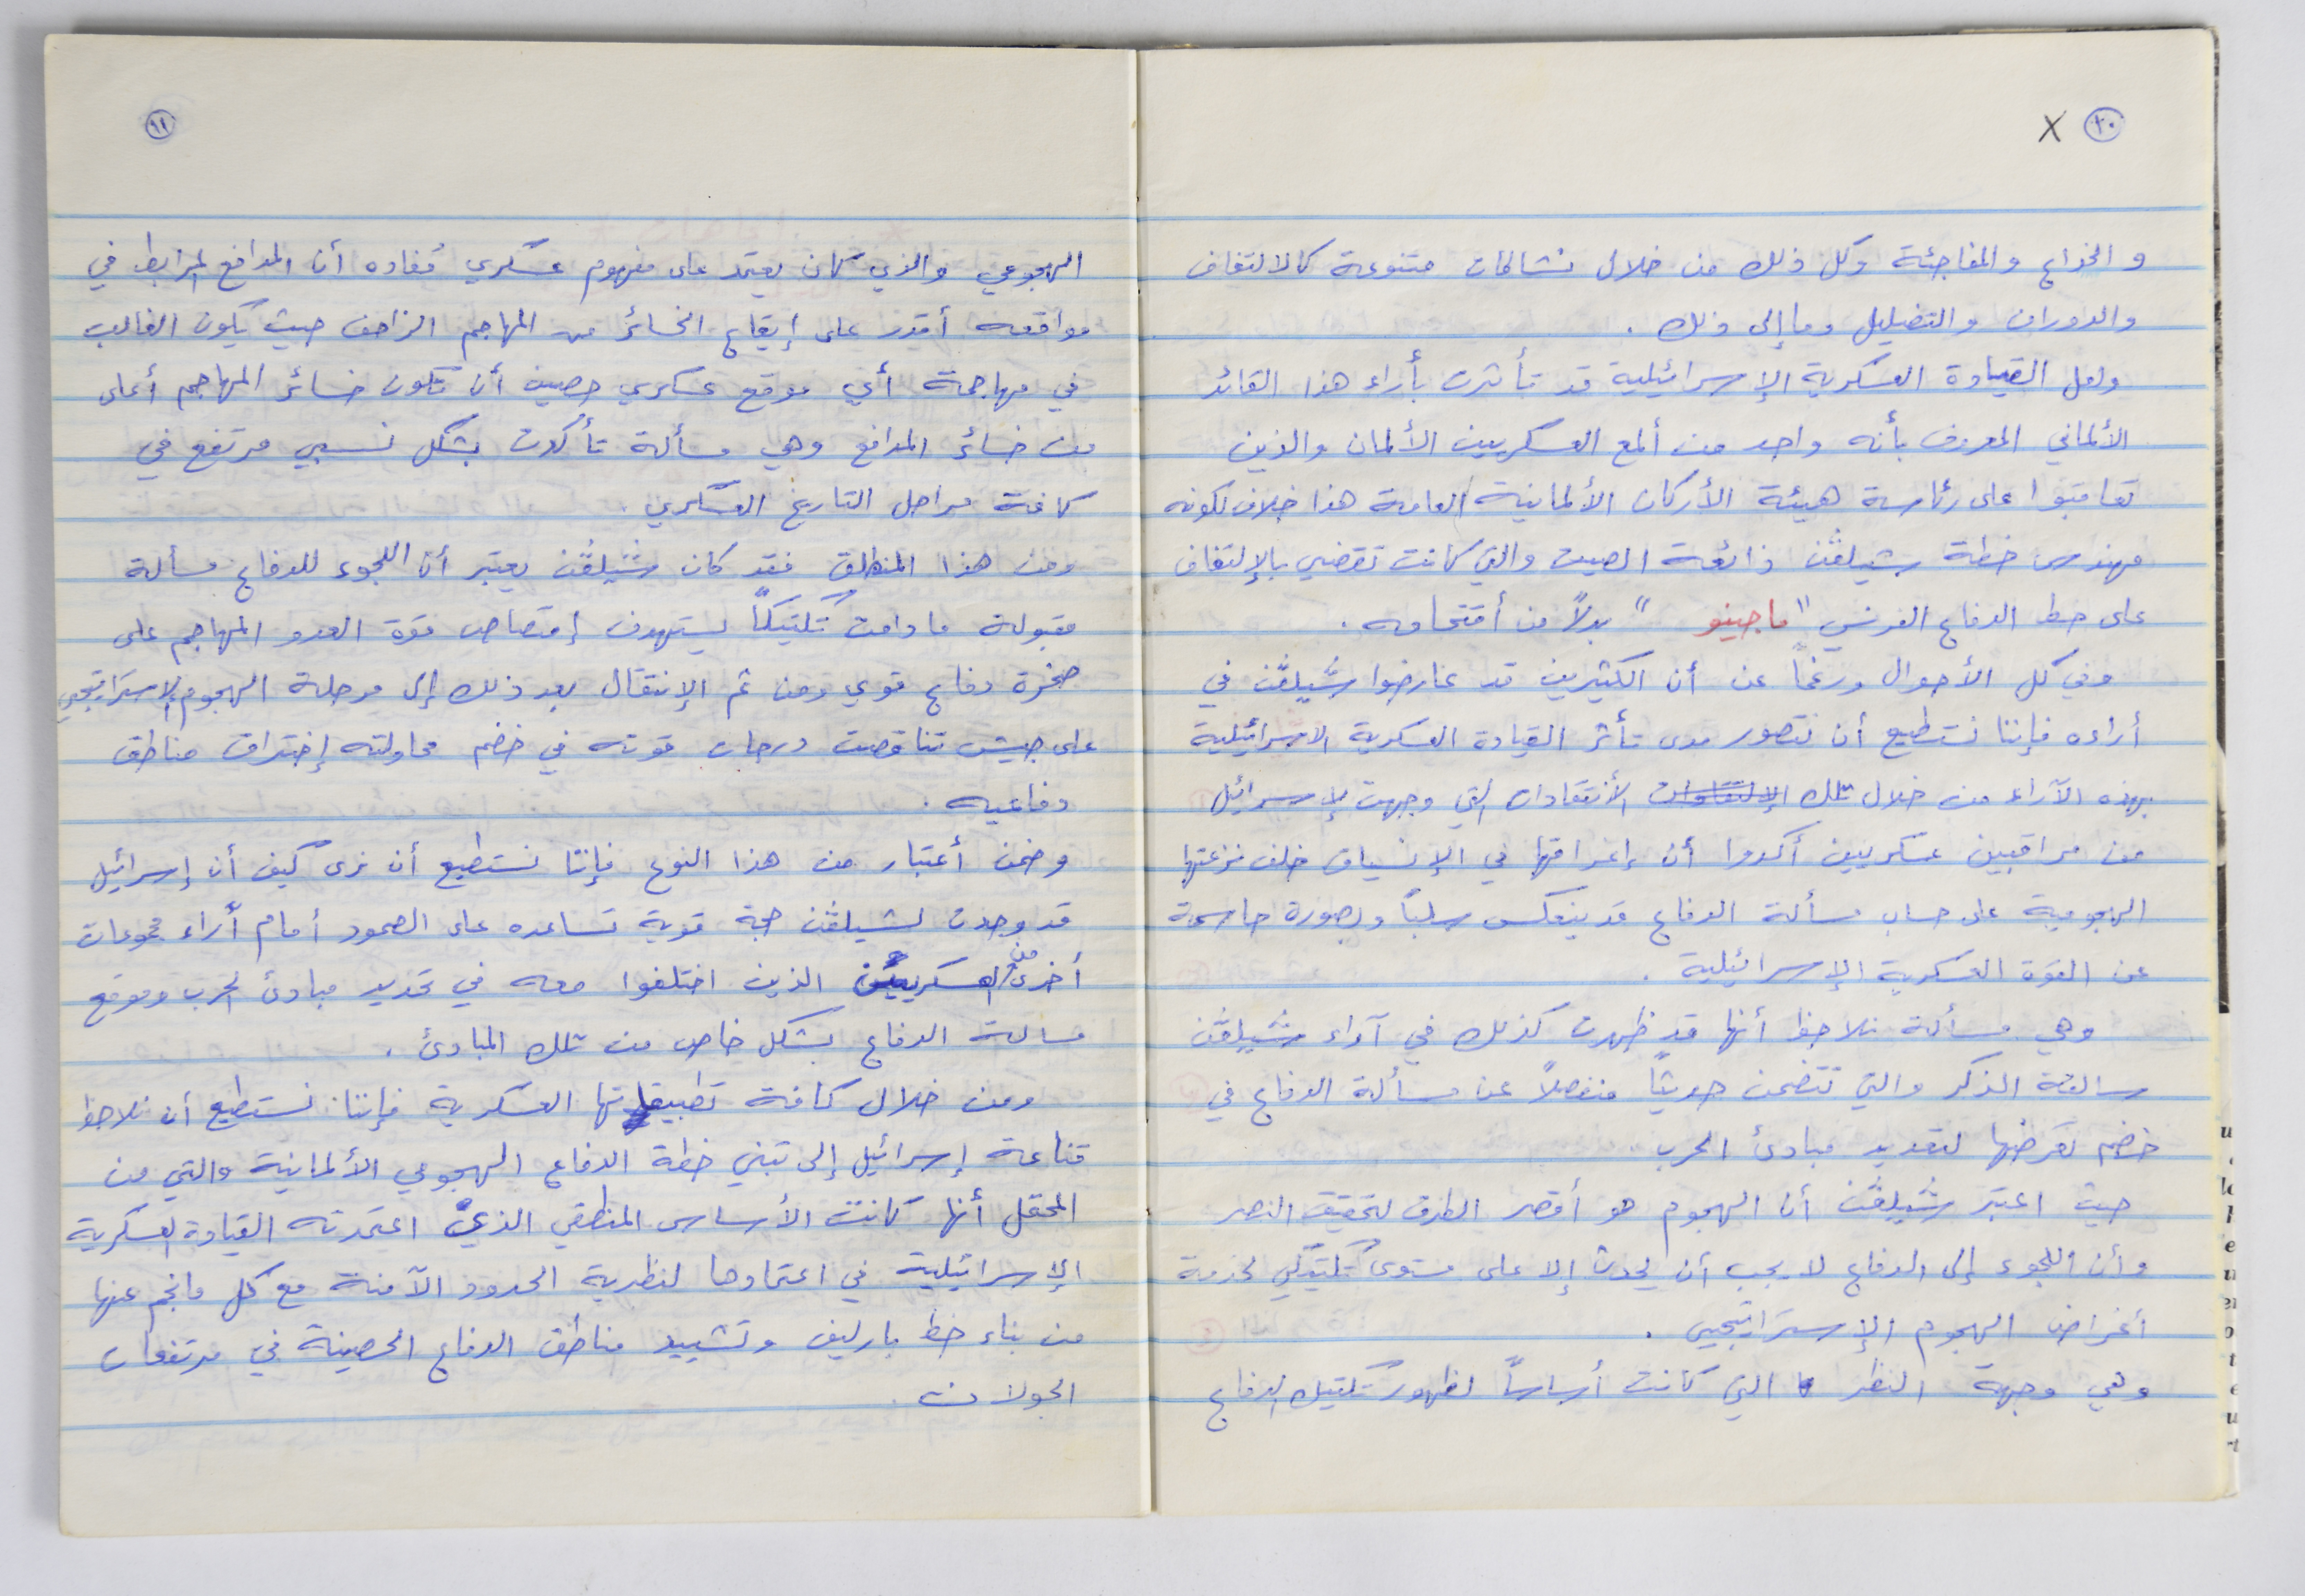 ٢٠ X
و الخداع والمفاجئة وكل ذلك من خلال نشاطات متنوعة كالالتفاف
والدوران والتضليل وما إلى ذلك .
ولعل القيادة العسكرية الإسرائيلية قد تأثرت بأراء هذا القائد
الألماني المعروف بأنه واحد من ألمع العسكريين الألمان والذين
تعاقبوا على رئاسة هيئة الأركان الألمانية العامة هذا خلاف لكونه
مهندس خطة شيلفن ذائعة الصيت والتي كانت تقضي بالإلتفاف
على خط الدفاع الفرنسي " ماجينو " بدلاً من أقتحامه .
وفي كل الأحوال ورغماً عن أن الكثيرين قد عارضوا شيلفن في
أراءه فإننا نستطيع أن نتصور مدى تأثر القيادة العسكرية الاسرائيلية
بهذه الآراء من خلال تلك الإنتقادات الأنتقادات التي وجهت لإسرائيل
من مراقبين عسكريين أكدوا أن إغراقها في الإنسياق خلف نزعتها
الهجومية على حساب مسألة الدفاع قد ينعكس سلباً وبصورة حاسمة
عن القوة العسكرية الإسرائيلية .
وهي مسألة نلاحظ أنها قد ظهرت كذلك في آراء شيلفن
سالفة الذكر والتي تتضمن حديثاً منفصلاً عن مسألة الدفاع في
خضم تعرضها لتعديد مبادئ الحرب .
حيث اعتبر شيلفن أن الهجوم هو أقصر الطرق لتحقيق النصر
وأن اللجوء إلى الدفاع لا يجب أن يحدث إلا على مستوى تكتيكي لخدمة
أغراض الهجوم الإستراتيجي .
وهي وجهة النظر التي كانت أساساً لظهور تكتيك الدفاع
٢١
الهجومي والذي كان يعتمد على مفهوم عسكري مُفاده أن المدافع المرابط في
مواقعه أقدر على إيقاع الخسائر من المهاجم الزاحف حيث يكون الغالب
في مهاجمة أي موقع عسكري حصين أن تكون خسائر المهاجم أعلى
من خسائر المدافع وهي مسألة تأكدت بشكل نسبي مرتفع في
كافة مراحل التاريخ العسكري .
ومن هذا المنطلق فقد كان شيلفن يعتبر أن اللجوء للدفاع مسألة
مقبولة ما دامت تكتيكاً يستهدف إمتصاص قوة العدو المهاجم على
صخرة دفاع قوي ومن ثم الإنتقال بعد ذلك إلى مرحلة الهجوم الإستراتيجي
على جيش تناقصت درجات قوته في خضم محاولته إختراق مناطق
دفاعيه .
وضمن أعتبار من هذا النوع فإننا نستطيع أن نرى كيف أن إسرائيل
قد وجدت لشيلفن حجة قوية تساعده على الصمود أمام أراء مجموعات
أخرى من العسكريين الذين اختلفوا معه في تحديد مبادئ الحرب وموقع
مسالة الدفاع بشكل خاص من تلك المبادئ .
ومن خلال كافة تطبيقاتها العسكرية فإننا نستطيع أن نلاحظ
قناعة إسرائيل إلى تبني خطة الدفاع الهجومي الألمانية والتي من
المحتمل أنها كانت الأساس المنطقي الذي اعتمدته القيادة العسكرية
الإسرائيلية في اعتمادها لنظرية الحدود الآمنة مع كل ما نجم عنها
من بناء خط بارليف وتشييد مناطق الدفاع الحصينة في مرتفعات
الجولان .